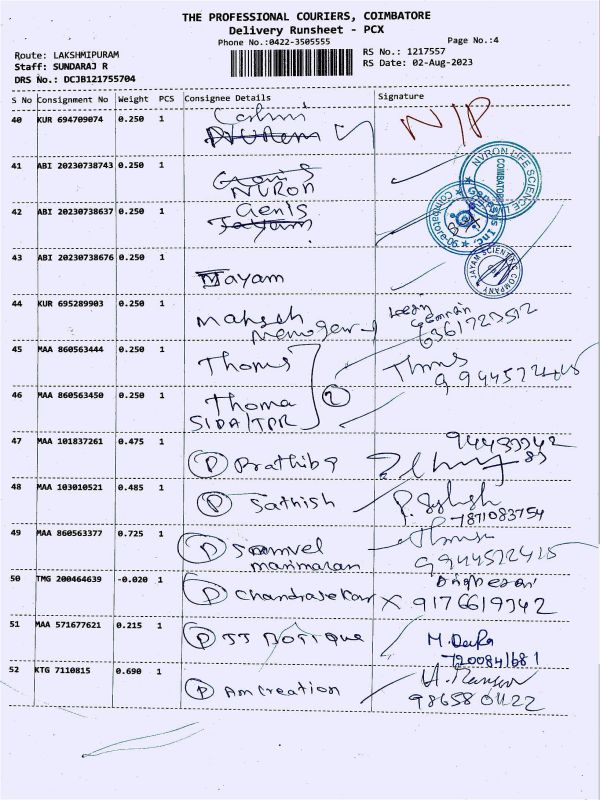 THE PROFESSIONAL COURIERS, COIMBATORE
Delivery Runsheet - PCX
Phone No.:0422-3505555
Page No.:4
Route: LAKSHMIPURAM
RS No.: 1217557
Staff: SUNDARAJ R
RS Date: 02-Aug-2023
DRS No.: DCJB121755704
S No Consignment No Weight PCS Consignee Details Signature
40 KUR 694709074 0.250 1 N/P
41 ABI 20230738743 0.250 1 NVRON
NVRON LIFE SCIENCE
COIMBATORE
42 ABI 20230738637 0.250 1 Genis Jayam
Genesis Inc.
Coimbatore-06
43 ABI 20230738676 0.250 1 Mayam
JAYAM SCIENTIFIC COMPANY
44 KUR 695289903 0.250 1 Mahesh
6361723512
45 MAA 860563444 0.250 1 Thoms
46 MAA 860563450 0.250 1 Thoma 2
SIDA/TPR
47 MAA 101837261 0.475 1 P Prathiba
48 MAA 103010521 0.485 1 P Sathish
7871083754
49 MAA 860563377 0.725 1 P Samvel
marimaran
50 TMG 200464639 -0.020 1 P Chandrasekar X 9176619342
51 MAA 571677621 0.215 1 P JJ Botique
7200841681
52 KTG 7110815 0.690 1 P Am Creation
9865801122